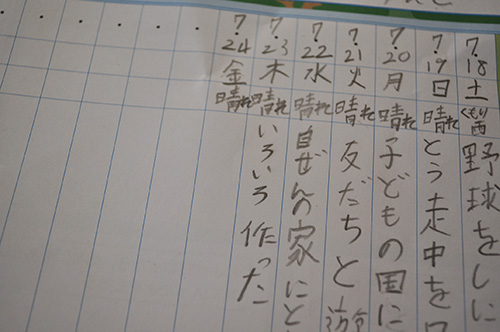 7・18 土 くもり 雨 野球をしに
7・19 日 晴れ とう走中を
7・20 月 晴れ 子どもの国に
7・21 火 晴れ 友だちと
7・22 水 晴れ 自ぜんの家にと
7・23 木 晴れ いろいろ作った
7・24 金 晴れ